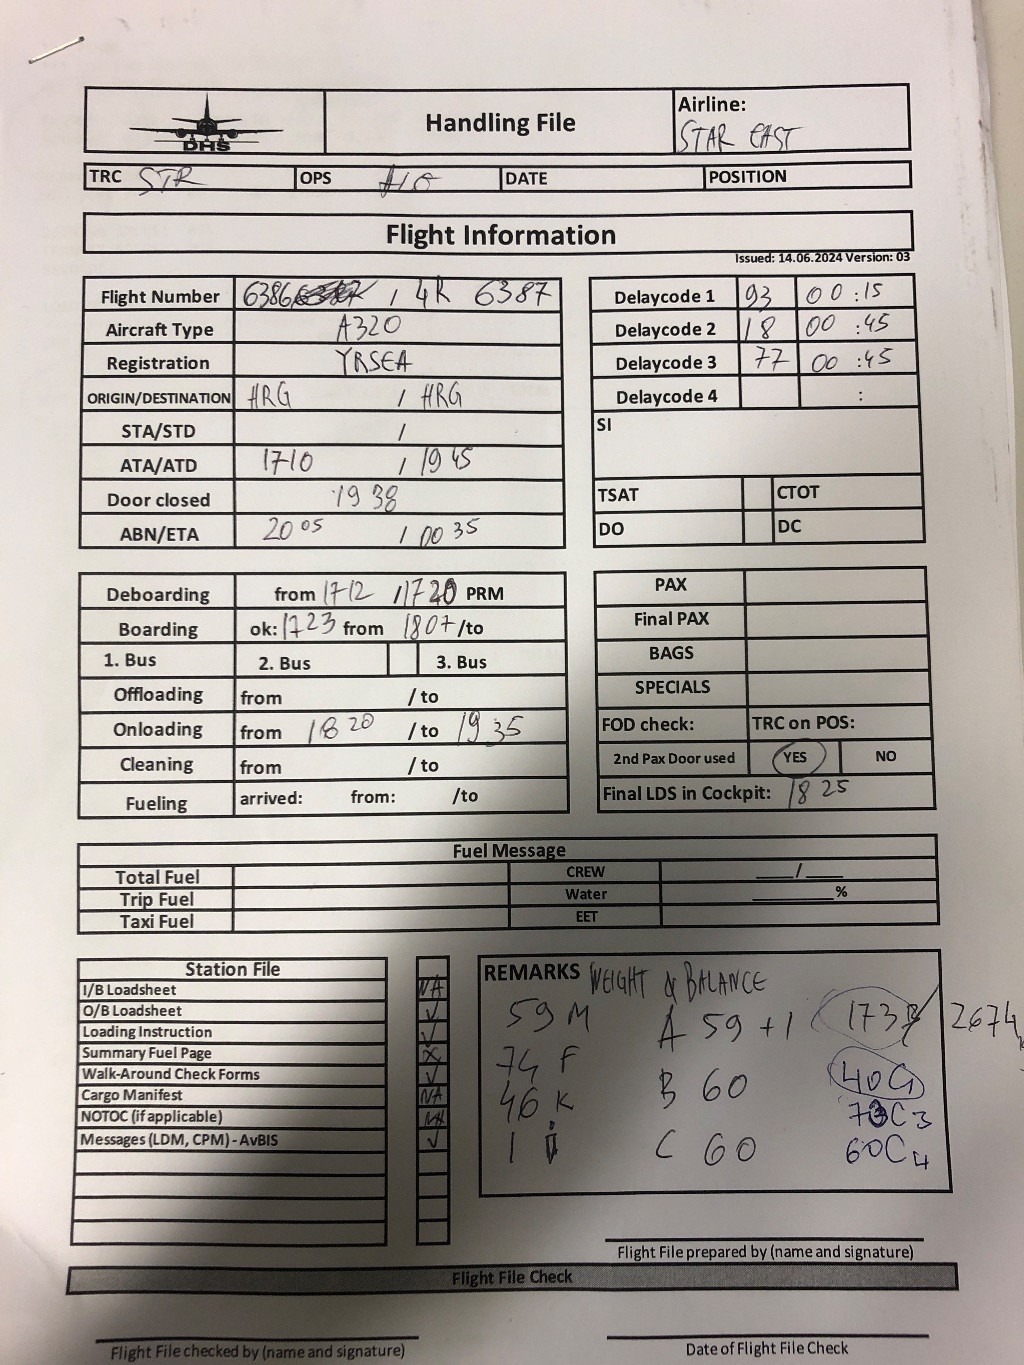 DHS
Handling File
Airline:
STAR EAST
TRC STR OPS DATE POSITION
Flight Information
Issued: 14.06.2024 Version: 03
Flight Number 6386 / 4R 6387
Aircraft Type A320
Registration YRSEA
ORIGIN/DESTINATION HRG / HRG
STA/STD /
ATA/ATD 1710 / 1945
Door closed 1938
ABN/ETA 2005 / 0035
Delaycode 1 93 00:15
Delaycode 2 18 00:45
Delaycode 3 77 00:45
Delaycode 4 :
SI
TSAT CTOT
DO DC
Deboarding from 1712 / 1720 PRM
Boarding ok: 1723 from 1807 /to
1. Bus 2. Bus 3. Bus
Offloading from / to
Onloading from 1820 / to 1935
Cleaning from / to
Fueling arrived: from: /to
PAX
Final PAX
BAGS
SPECIALS
FOD check: TRC on POS:
2nd Pax Door used YES NO
Final LDS in Cockpit: 1825
Fuel Message
Total Fuel CREW ____/____
Trip Fuel Water ________%
Taxi Fuel EET
Station File
I/B Loadsheet NA
O/B Loadsheet ✓
Loading Instruction ✓
Summary Fuel Page X
Walk-Around Check Forms ✓
Cargo Manifest NA
NOTOC (if applicable) NA
Messages (LDM, CPM) - AvBIS ✓
REMARKS WEIGHT & BALANCE
59 M A 59 + 1 2674
74 F B 60 40G
46 K C 60 C3
1 i 60C4
Flight File prepared by (name and signature)
Flight File Check
Flight File checked by (name and signature)
Date of Flight File Check